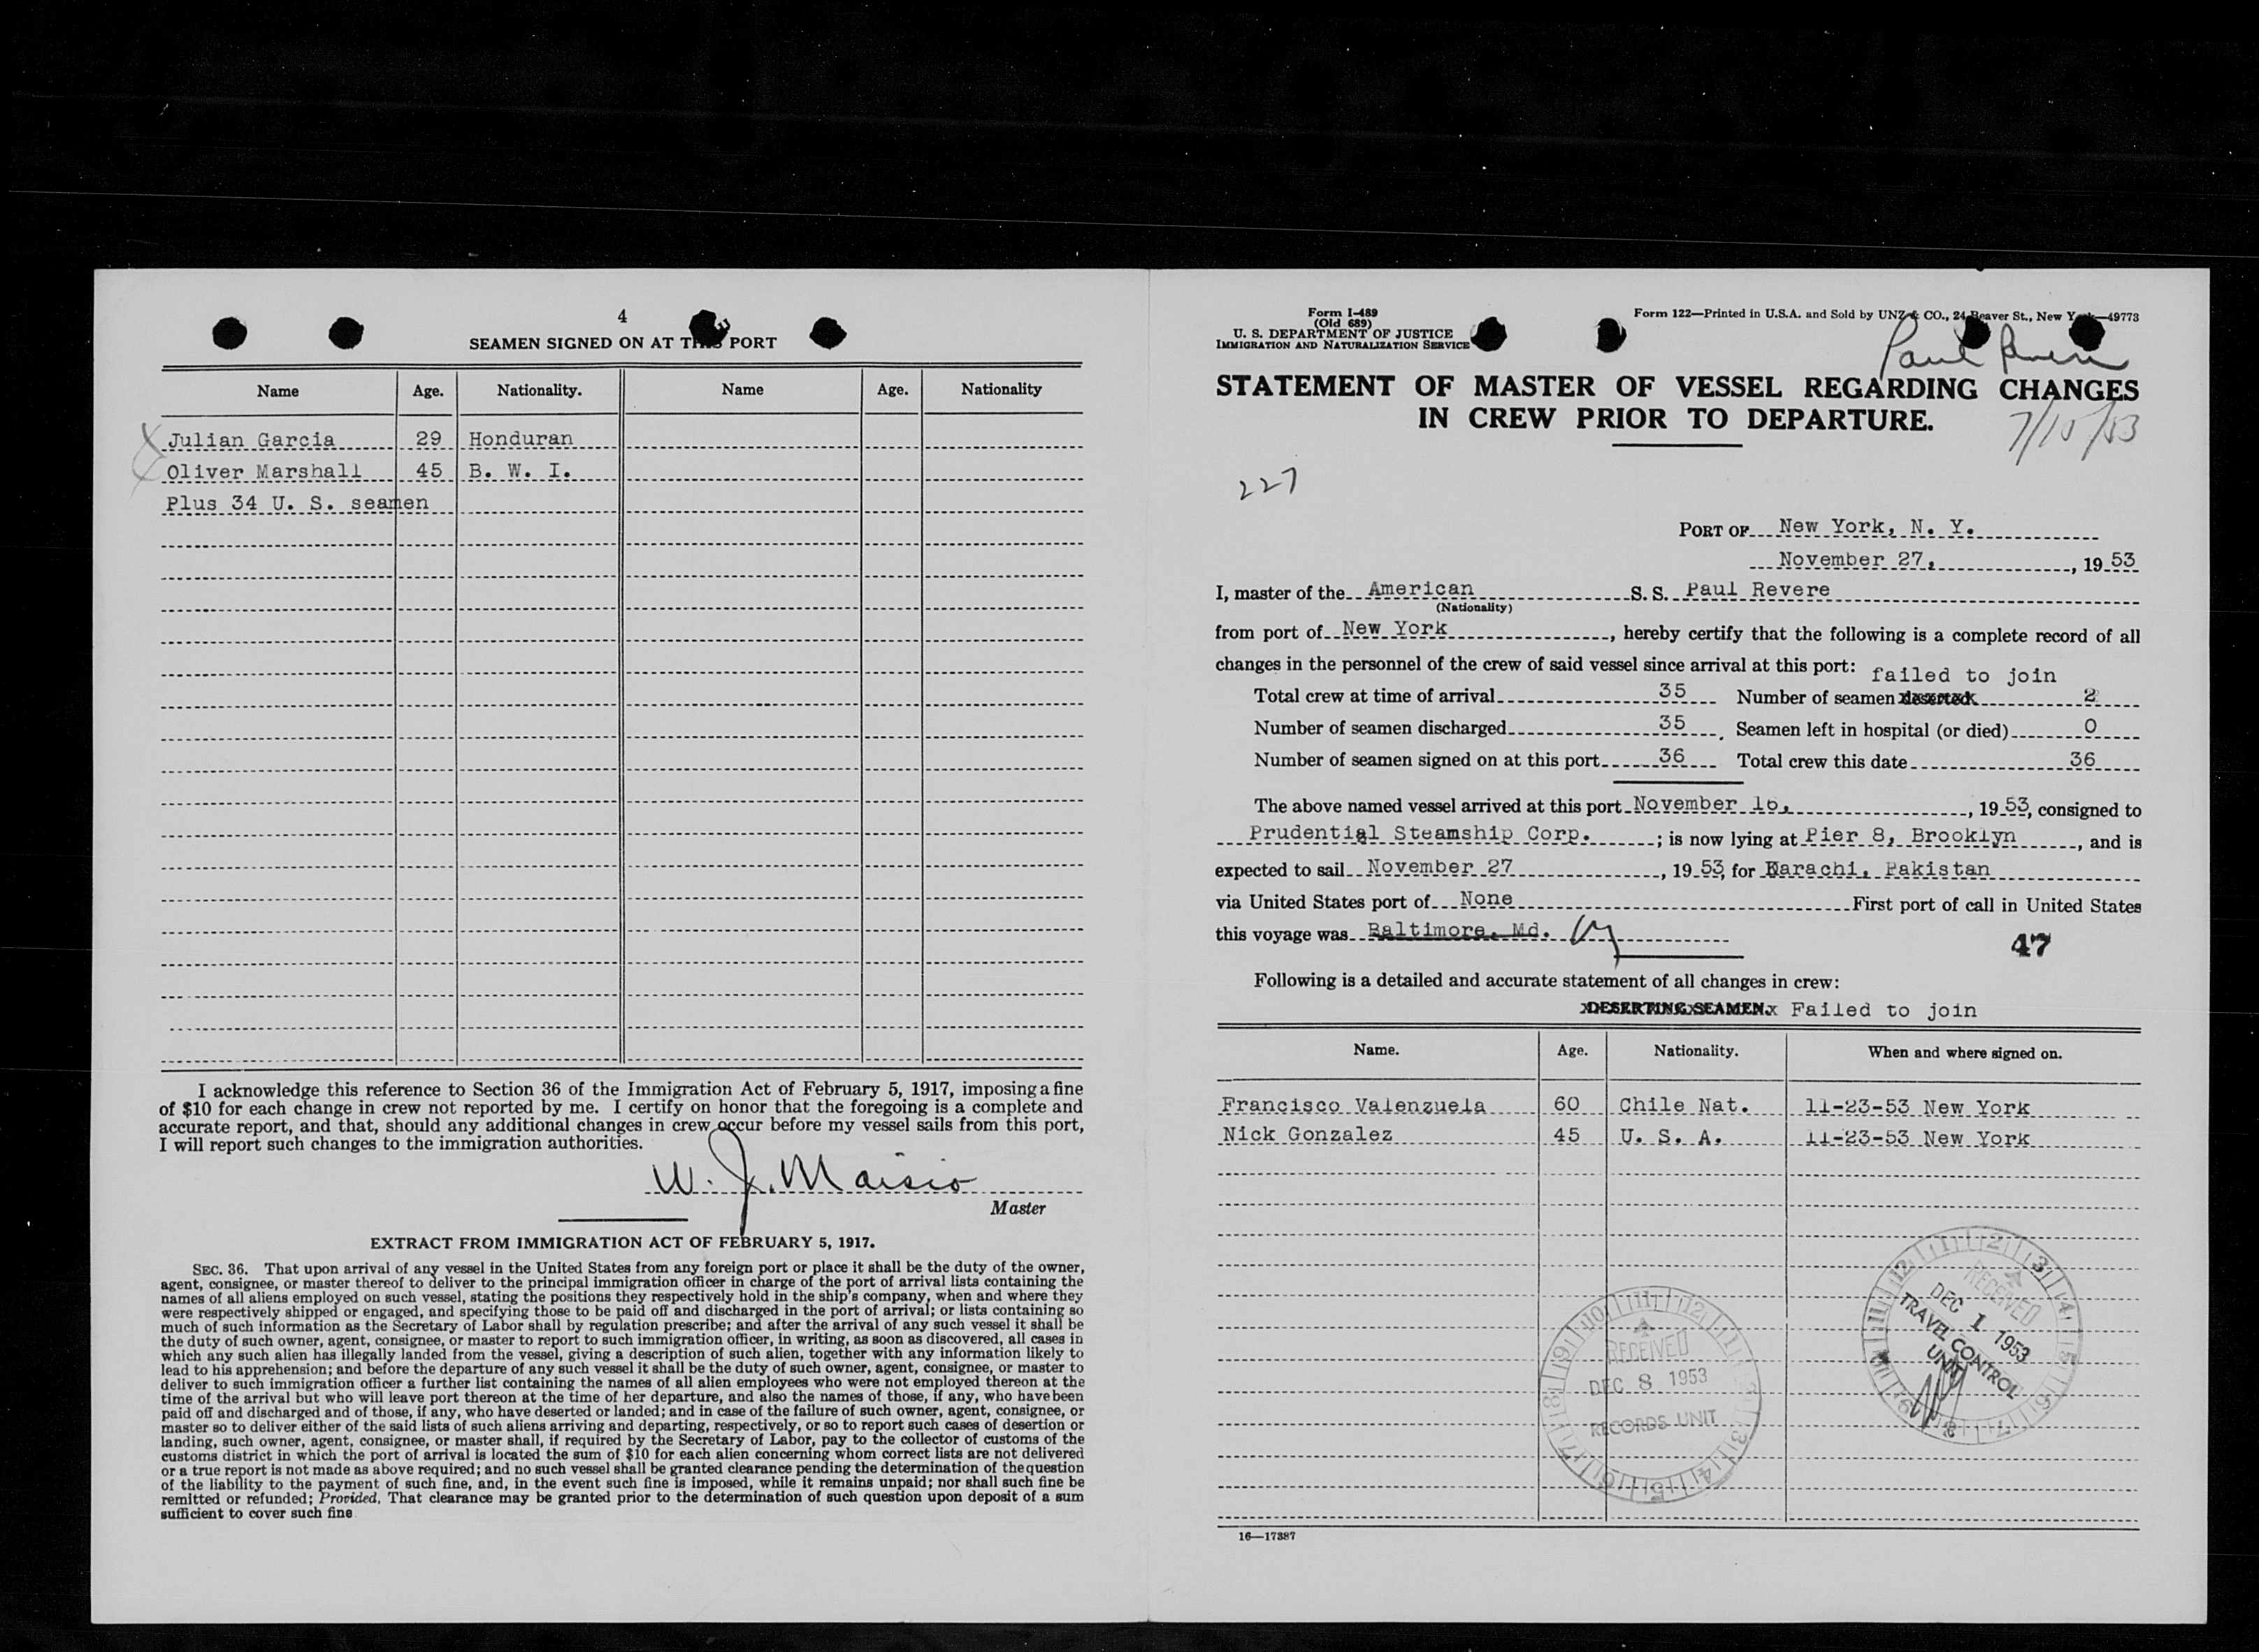 4
SEAMEN SIGNED ON AT THIS PORT
Name Age. Nationality. Name Age. Nationality
Julian Garcia 29 Honduran
Oliver Marshall 45 B. W. I.
Plus 34 U. S. seamen
I acknowledge this reference to Section 36 of the Immigration Act of February 5, 1917, imposing a fine
of $10 for each change in crew not reported by me. I certify on honor that the foregoing is a complete and
accurate report, and that, should any additional changes in crew occur before my vessel sails from this port,
I will report such changes to the immigration authorities.
W. J. Maisio
Master
EXTRACT FROM IMMIGRATION ACT OF FEBRUARY 5, 1917.
SEC. 36. That upon arrival of any vessel in the United States from any foreign port or place it shall be the duty of the owner,
agent, consignee, or master thereof to deliver to the principal immigration officer in charge of the port of arrival lists containing the
names of all aliens employed on such vessel, stating the positions they respectively hold in the ship's company, when and where they
were respectively shipped or engaged, and specifying those to be paid off and discharged in the port of arrival; or lists containing so
much of such information as the Secretary of Labor shall by regulation prescribe; and after the arrival of any such vessel it shall be
the duty of such owner, agent, consignee, or master to report to such immigration officer, in writing, as soon as discovered, all cases in
which any such alien has illegally landed from the vessel, giving a description of such alien, together with any information likely to
lead to his apprehension; and before the departure of any such vessel it shall be the duty of such owner, agent, consignee, or master to
deliver to such immigration officer a further list containing the names of all alien employees who were not employed thereon at the
time of the arrival but who will leave port thereon at the time of her departure, and also the names of those, if any, who have been
paid off and discharged and of those, if any, who have deserted or landed; and in case of the failure of such owner, agent, consignee, or
master so to deliver either of the said lists of such aliens arriving and departing, respectively, or so to report such cases of desertion or
landing, such owner, agent, consignee, or master shall, if required by the Secretary of Labor, pay to the collector of customs of the
customs district in which the port of arrival is located the sum of $10 for each alien concerning whom correct lists are not delivered
or a true report is not made as above required; and no such vessel shall be granted clearance pending the determination of the question
of the liability to the payment of such fine, and, in the event such fine is imposed, while it remains unpaid; nor shall such fine be
remitted or refunded; Provided, That clearance may be granted prior to the determination of such question upon deposit of a sum
sufficient to cover such fine
Form I-489
(Old 689)
U. S. DEPARTMENT OF JUSTICE
IMMIGRATION AND NATURALIZATION SERVICE
Form 122—Printed in U.S.A. and Sold by UNZ & CO., 24 Beaver St., New York—49773
Paul Revere
STATEMENT OF MASTER OF VESSEL REGARDING CHANGES
IN CREW PRIOR TO DEPARTURE.
7/15/53
227
PORT OF New York, N. Y.
November 27, , 19 53
I, master of the American S. S. Paul Revere
(Nationality)
from port of New York , hereby certify that the following is a complete record of all
changes in the personnel of the crew of said vessel since arrival at this port:
failed to join
Total crew at time of arrival 35 Number of seamen deserted 2
Number of seamen discharged 35 Seamen left in hospital (or died) 0
Number of seamen signed on at this port 36 Total crew this date 36
The above named vessel arrived at this port November 16, , 19 53, consigned to
Prudential Steamship Corp. ; is now lying at Pier 8, Brooklyn , and is
expected to sail November 27 , 19 53, for Karachi, Pakistan
via United States port of None First port of call in United States
this voyage was Baltimore, Md.
47
Following is a detailed and accurate statement of all changes in crew:
DESERTING SEAMEN. Failed to join
Name. Age. Nationality. When and where signed on.
Francisco Valenzuela 60 Chile Nat. 11-23-53 New York
Nick Gonzalez 45 U. S. A. 11-23-53 New York
RECEIVED
DEC 1 1953
TRAVEL CONTROL
UNIT
RECEIVED
DEC 8 1953
RECORDS UNIT
16—17387